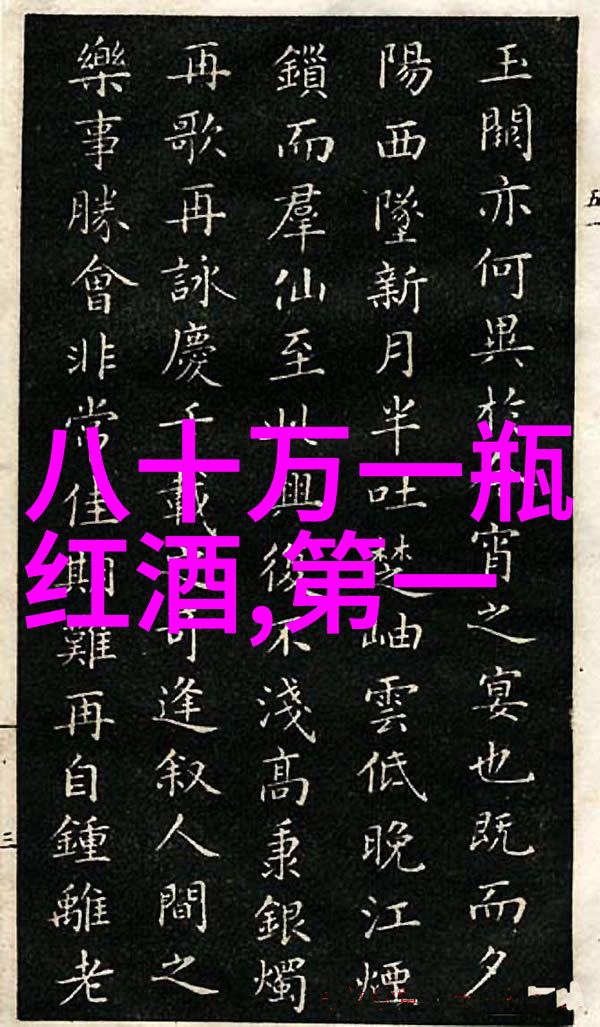 玉闕亦何異於宵之宴也既而夕
陽西墜新月半吐楚岫雲低晚江煙
鎖而羣仙至此興復不淺高秉銀燭
再歌再詠慶千載逢叙人間之
樂事勝會非常佳期難再自鍾離老
八十万一瓶
红酒,第一
五一
三